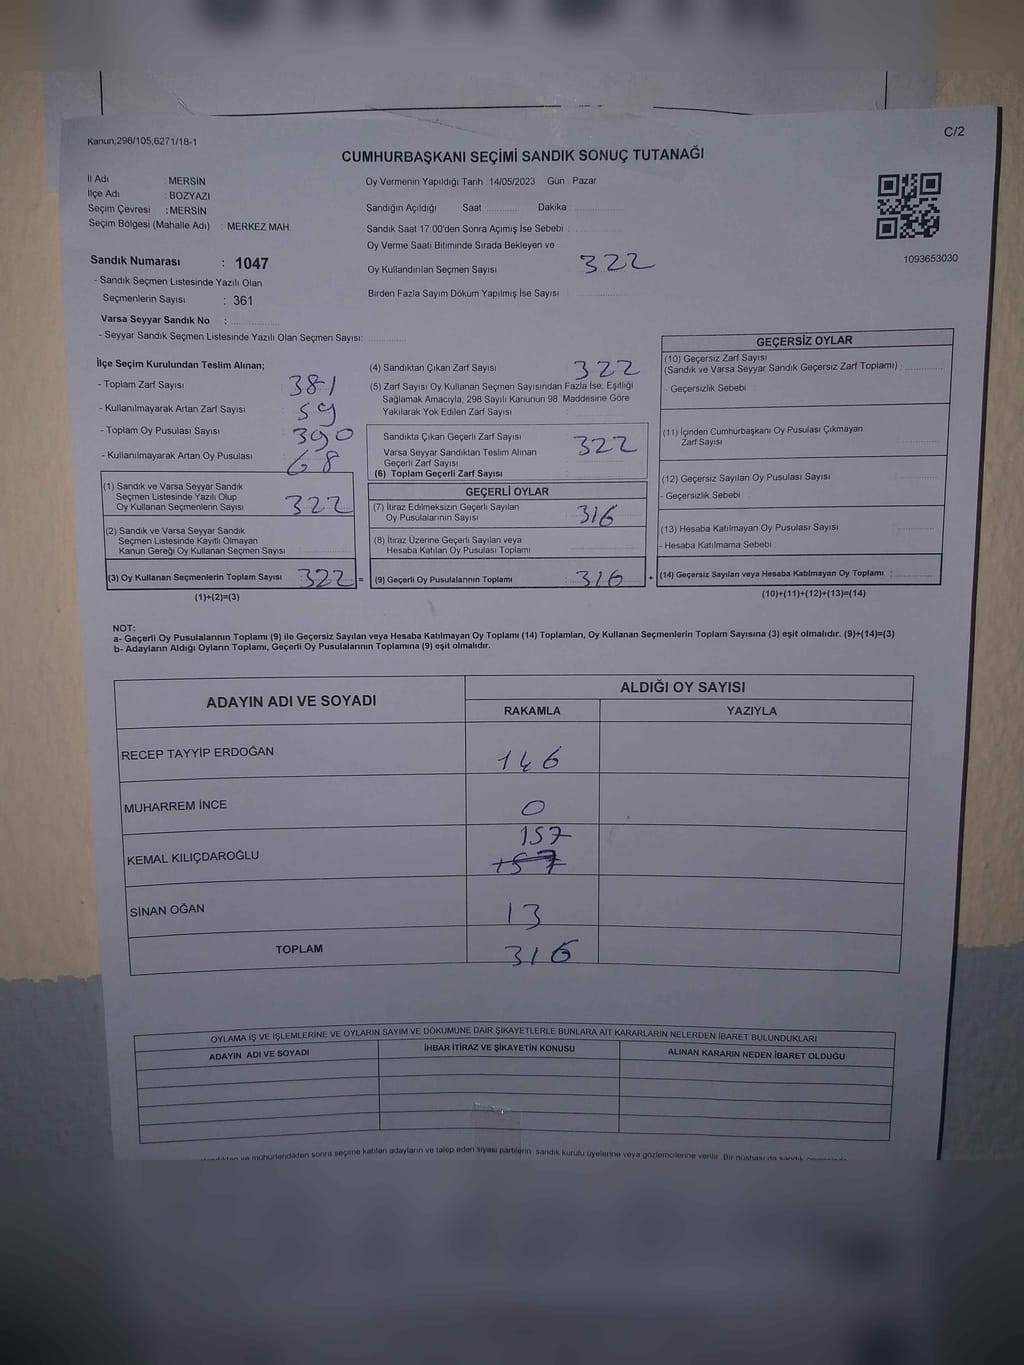 Kanun;298/105,6271/18-1
C/2
CUMHURBAŞKANI SEÇİMİ SANDIK SONUÇ TUTANAĞI
İl Adı : MERSİN
İlçe Adı : BOZYAZI
Seçim Çevresi : MERSİN
Seçim Bölgesi (Mahalle Adı) : MERKEZ MAH.
Oy Vermenin Yapıldığı Tarih : 14/05/2023 Gün : Pazar
Sandığın Açıldığı Saat ............ Dakika ............
Sandık Saat 17:00'den Sonra Açımış İse Sebebi : ............
Oy Verme Saati Bitiminde Sırada Bekleyen ve
Oy Kullandırılan Seçmen Sayısı 322
Birden Fazla Sayım Döküm Yapılmış İse Sayısı : ............
1093653030
Sandık Numarası : 1047
- Sandık Seçmen Listesinde Yazılı Olan
Seçmenlerin Sayısı : 361
Varsa Seyyar Sandık No : ............
- Seyyar Sandık Seçmen Listesinde Yazılı Olan Seçmen Sayısı: ............
İlçe Seçim Kurulundan Teslim Alınan;
- Toplam Zarf Sayısı : 381
- Kullanılmayarak Artan Zarf Sayısı : 59
- Toplam Oy Pusulası Sayısı : 390
- Kullanılmayarak Artan Oy Pusulası : 68
(1) Sandık ve Varsa Seyyar Sandık
Seçmen Listesinde Yazılı Olup
Oy Kullanan Seçmenlerin Sayısı : 322
(2) Sandık ve Varsa Seyyar Sandık
Seçmen Listesinde Kayıtlı Olmayan
Kanun Gereği Oy Kullanan Seçmen Sayısı : ............
(3) Oy Kullanan Seçmenlerin Toplam Sayısı : 322 =
(1)+(2)=(3)
(4) Sandıktan Çıkan Zarf Sayısı 322
(5) Zarf Sayısı Oy Kullanan Seçmen Sayısından Fazla İse, Eşitliği
Sağlamak Amacıyla, 298 Sayılı Kanunun 98. Maddesine Göre
Yakılarak Yok Edilen Zarf Sayısı : ............
Sandıkta Çıkan Geçerli Zarf Sayısı 322
Varsa Seyyar Sandıktan Teslim Alınan
Geçerli Zarf Sayısı
(6) Toplam Geçerli Zarf Sayısı
GEÇERLİ OYLAR
(7) İtiraz Edilmeksizin Geçerli Sayılan
Oy Pusulalarının Sayısı : 316
(8) İtiraz Üzerine Geçerli Sayılan veya
Hesaba Katılan Oy Pusulası Toplamı : ............
(9) Geçerli Oy Pusulalarının Toplamı : 316 +
GEÇERSİZ OYLAR
(10) Geçersiz Zarf Sayısı
(Sandık ve Varsa Seyyar Sandık Geçersiz Zarf Toplamı) : ............
- Geçersizlik Sebebi :
(11) İçinden Cumhurbaşkanı Oy Pusulası Çıkmayan
Zarf Sayısı : ............
(12) Geçersiz Sayılan Oy Pusulası Sayısı : ............
- Geçersizlik Sebebi :
(13) Hesaba Katılmayan Oy Pusulası Sayısı : ............
- Hesaba Katılmama Sebebi :
(14) Geçersiz Sayılan veya Hesaba Katılmayan Oy Toplamı : ............
(10)+(11)+(12)+(13)=(14)
NOT:
a- Geçerli Oy Pusulalarının Toplamı (9) ile Geçersiz Sayılan veya Hesaba Katılmayan Oy Toplamı (14) Toplamları, Oy Kullanan Seçmenlerin Toplam Sayısına (3) eşit olmalıdır. (9)+(14)=(3)
b- Adayların Aldığı Oyların Toplamı, Geçerli Oy Pusulalarının Toplamına (9) eşit olmalıdır.
ADAYIN ADI VE SOYADI
ALDIĞI OY SAYISI
RAKAMLA YAZIYLA
RECEP TAYYİP ERDOĞAN 146
MUHARREM İNCE 0
157
KEMAL KILIÇDAROĞLU 157
SİNAN OĞAN 13
TOPLAM 316
OYLAMA İŞ VE İŞLEMLERİNE VE OYLARIN SAYIM VE DÖKÜMÜNE DAİR ŞİKAYETLERLE BUNLARA AİT KARARLARIN NELERDEN İBARET BULUNDUKLARI
ADAYIN ADI VE SOYADI İHBAR İTİRAZ VE ŞİKAYETİN KONUSU ALINAN KARARIN NEDEN İBARET OLDUĞU
mühürlendikten sonra seçime katılan adayların ve talep eden siyasi partilerin sandık kurulu üyelerine veya gözlemcilerine verilir. Bir nüshası da sandık